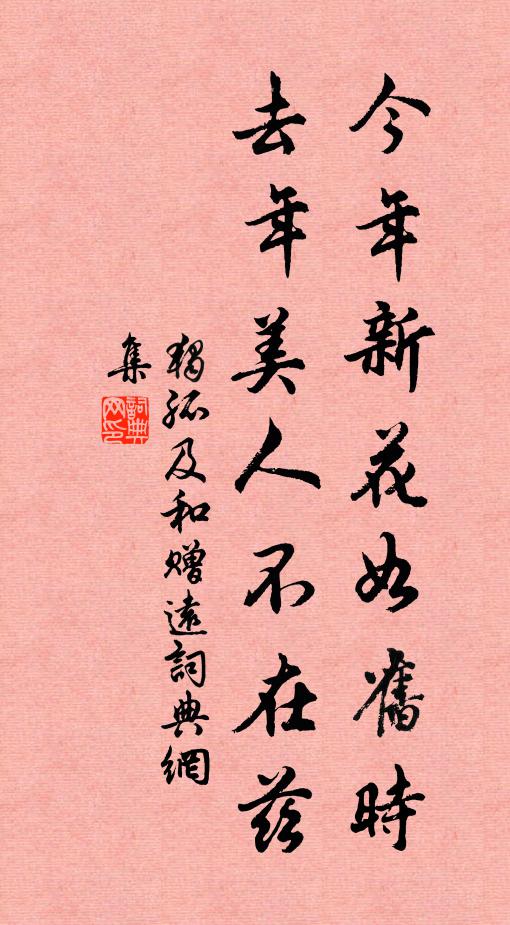 今年新花如舊時
去年美人不在茲
獨孤及和贈遠詞典網
集
詞典
网印